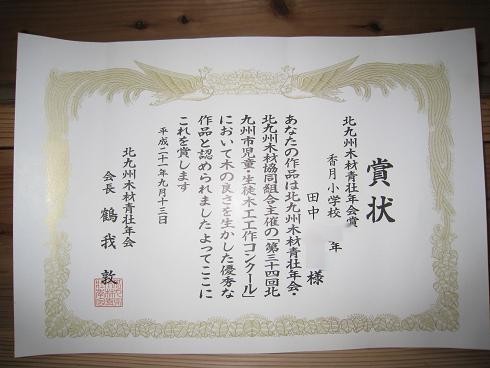 賞状
北九州木材青壮年会賞
香月小学校 年
田中 様
あなたの作品は北九州木材青壮年会・
北九州木材協同組合主催の「第三十四回北
九州市児童・生徒木工工作コンクール」
において木の良さを生かした優秀な
作品と認められました よってここに
これを賞します
平成二十一年九月十三日
北九州木材青壮年会
会長 鶴我 敦